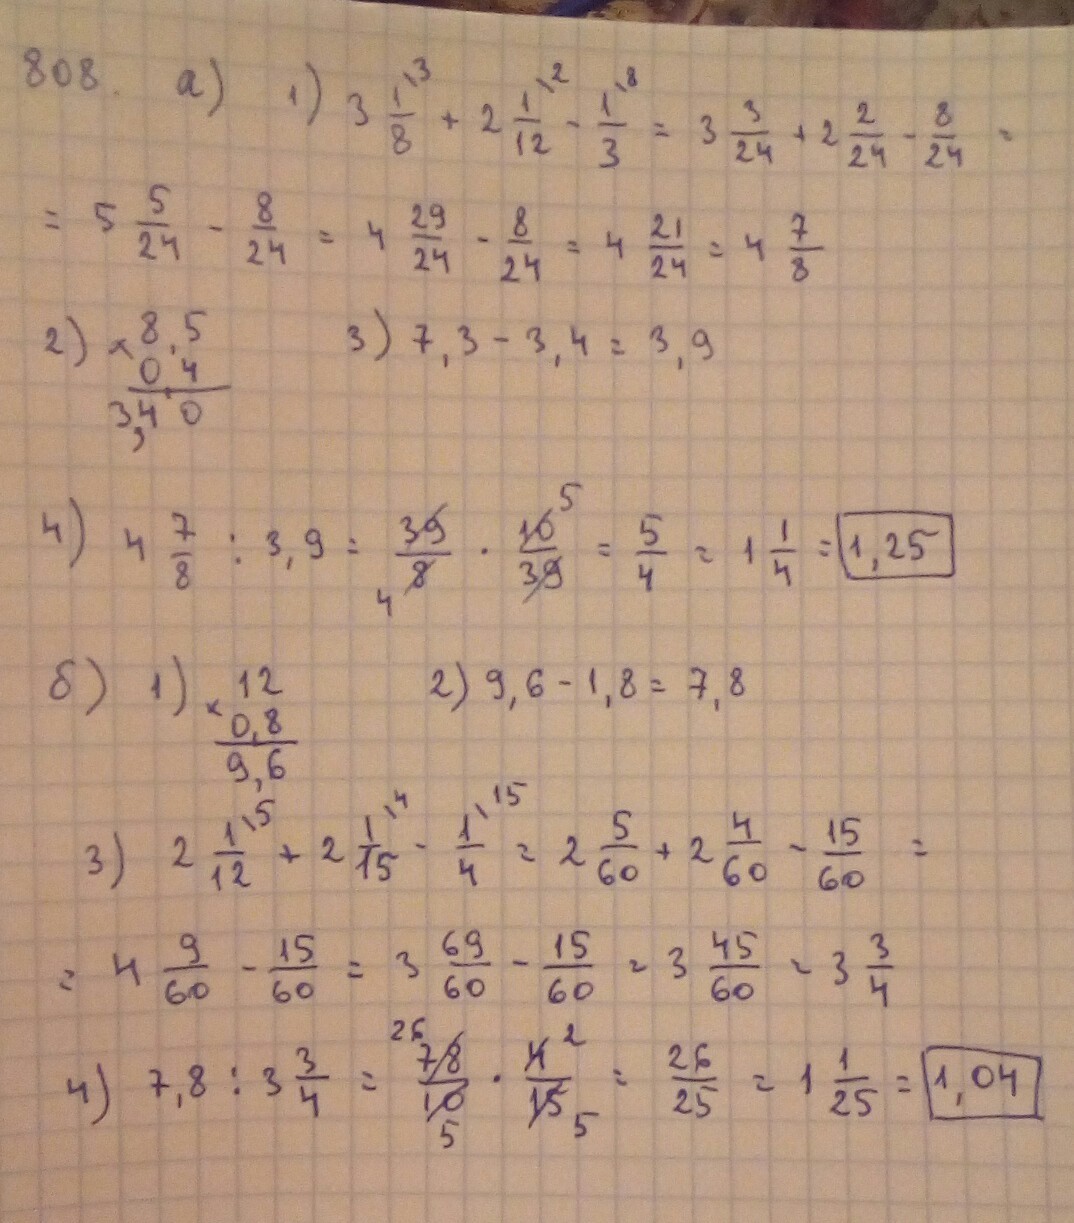 808. а) 1) 3 1\3/8 + 2 1\2/12 - 1\8/3 = 3 3/24 + 2 2/24 - 8/24 =
= 5 5/24 - 8/24 = 4 29/24 - 8/24 = 4 21/24 = 4 7/8
2) × 8,5 3) 7,3 - 3,4 = 3,9
0,4
3,40
4) 4 7/8 : 3,9 = 39/8 4 · 10 5/39 = 5/4 = 1 1/4 = 1,25
б) 1) × 12 2) 9,6 - 1,8 = 7,8
0,8
9,6
3) 2 1\5/12 + 2 1\4/15 - 1\15/4 = 2 5/60 + 2 4/60 - 15/60 =
= 4 9/60 - 15/60 = 3 69/60 - 15/60 = 3 45/60 = 3 3/4
4) 7,8 : 3 3/4 = 26 78/10 5 · 4 2/15 5 = 26/25 = 1 1/25 = 1,04